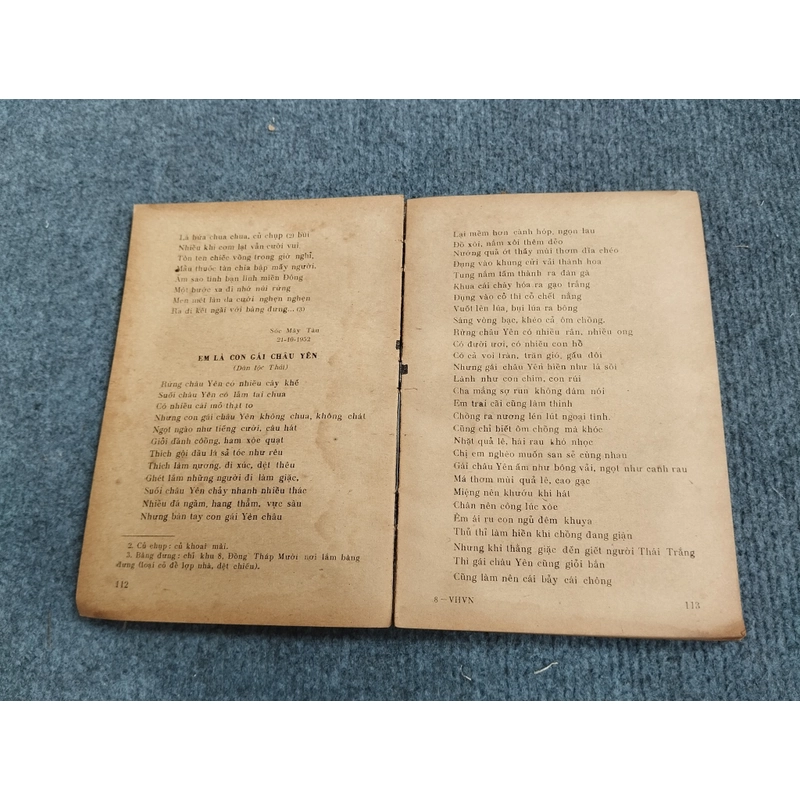 Là bứa chua chua, củ chụp (2) bùi
Nhiều khi cơm lạt vẫn cười vui
Tòn ten chiếc võng trong giờ nghỉ,
Mẩu thuốc tàn chia bập mấy người.
Ấm sao tình bạn lính miền Đông
Một bước xa đi nhớ núi rừng
Men mét làn da cười nghẹn nghẹn
Ra đi kết ngãi với bàng đưng... (3)
Sóc Mây Tàu
21-10-1952
EM LÀ CON GÁI CHÂU YÊN
(Dân tộc Thái)
Rừng châu Yên có nhiều cây khế
Suối châu Yên có lắm tai chua
Có nhiều cái mỏ thật to
Nhưng con gái châu Yên không chua, không chát
Ngọt ngào như tiếng cười, câu hát
Giỏi đánh cồông, ham xòe quạt
Thích gội đầu lá sả tóc như rêu
Thích làm nương, đi xúc, dệt thêu
Ghét lắm những người đi làm giặc,
Suối châu Yên chảy nhanh nhiều thác
Nhiều đá ngầm, hang thẳm, vực sâu
Nhưng bàn tay con gái Yên châu
2. Củ chụp: củ khoai mài.
3. Bàng đưng: chỉ khu 8, Đồng Tháp Mười nơi lắm bàng
đưng (loại cỏ để lợp nhà, dệt chiếu).
112
Lại mềm hơn cành hóp, ngọn lau
Đồ xôi, nắm xôi thêm dẻo
Nướng quả ớt thấy mùi thơm đĩa chéo
Đụng vào khung cửi vải thành hoa
Tưng nắm tấm thành ra đàn gà
Khua cái chày hóa ra gạo trắng
Đụng vào cỏ thì cỏ chết nắng
Vuốt lên lúa, bụi lúa ra bông
Sáng vòng bạc, khéo cả ôm chồng.
Rừng châu Yên có nhiều rắn, nhiều ong
Có đười ươi, có nhiều con hổ
Có cả voi tràn, trăn gió, gấu đôi
Nhưng gái châu Yên hiền như lá sôi
Lành như con chim, con rùi
Cha mắng sợ run không dám nói
Em trai cãi cũng làm thinh
Chồng ra nương lén lút ngoại tình.
Cũng chỉ biết ôm chõng mà khóc
Nhặt quả lê, hái rau khó nhọc
Chị em nghèo muốn san sẻ cùng nhau
Gái châu Yên ấm như bông vải, ngọt như canh rau
Má thơm mùi quả lê, cao gạc
Miệng nên khướu khi hát
Chân nên công lúc xóc
Êm ái ru con ngủ đêm khuya
Thủ thỉ làm hiền khi chồng đang giận
Nhưng khi thằng giặc đến giết người Thái Trắng
Thì gái châu Yên cũng giỏi bắn
Cũng làm nên cái bẫy cái chông
8 – VHVN
113